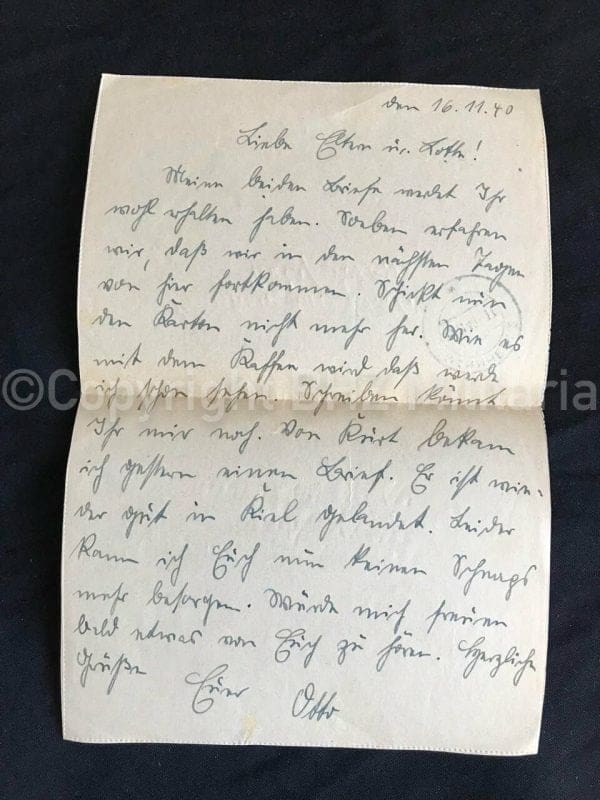 den 16.11.40
Liebe Eltern u. Lotte!
Meine beiden Briefe werdet Ihr
wohl erhalten haben. Soeben erfahren
wir, daß wir in den nächsten Tagen
von hier fortkommen. Schickt nun
den Karton nicht mehr her. Wie es
mit dem Kaffee wird daß werde
ich schon sehen. Schreiben könnt
Ihr mir noch. Von Kurt bekam
ich gestern einen Brief. Er ist wie-
der gut in Kiel gelandet. Leider
kann ich Euch nun keinen Schnaps
mehr besorgen. Würde mich freuen
bald etwas von Euch zu hören. Herzliche
Grüße
Euer Otto
©Copyright